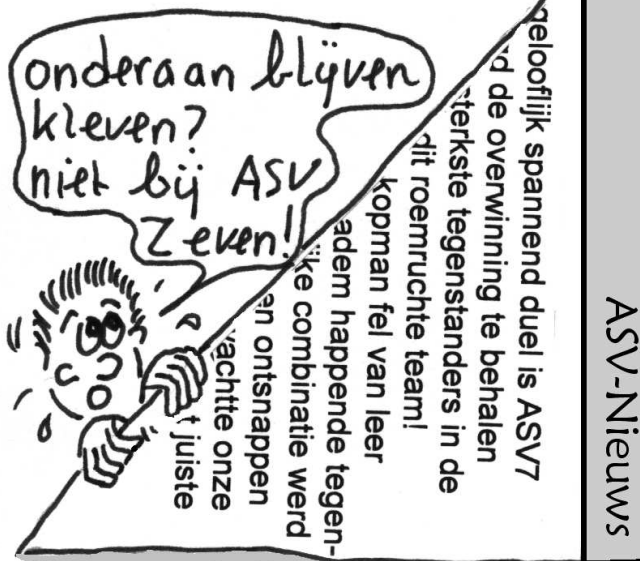 onderaan blijven
kleven?
niet bij ASV
Zeven!
gelooflijk spannend duel is ASV7
de overwinning te behalen
sterkste tegenstanders in de
dit roemruchte team!
kopman fel van leer
adem happende tegen-
combinatie werd
ontsnappen
onze
juiste
ASV-Nieuws